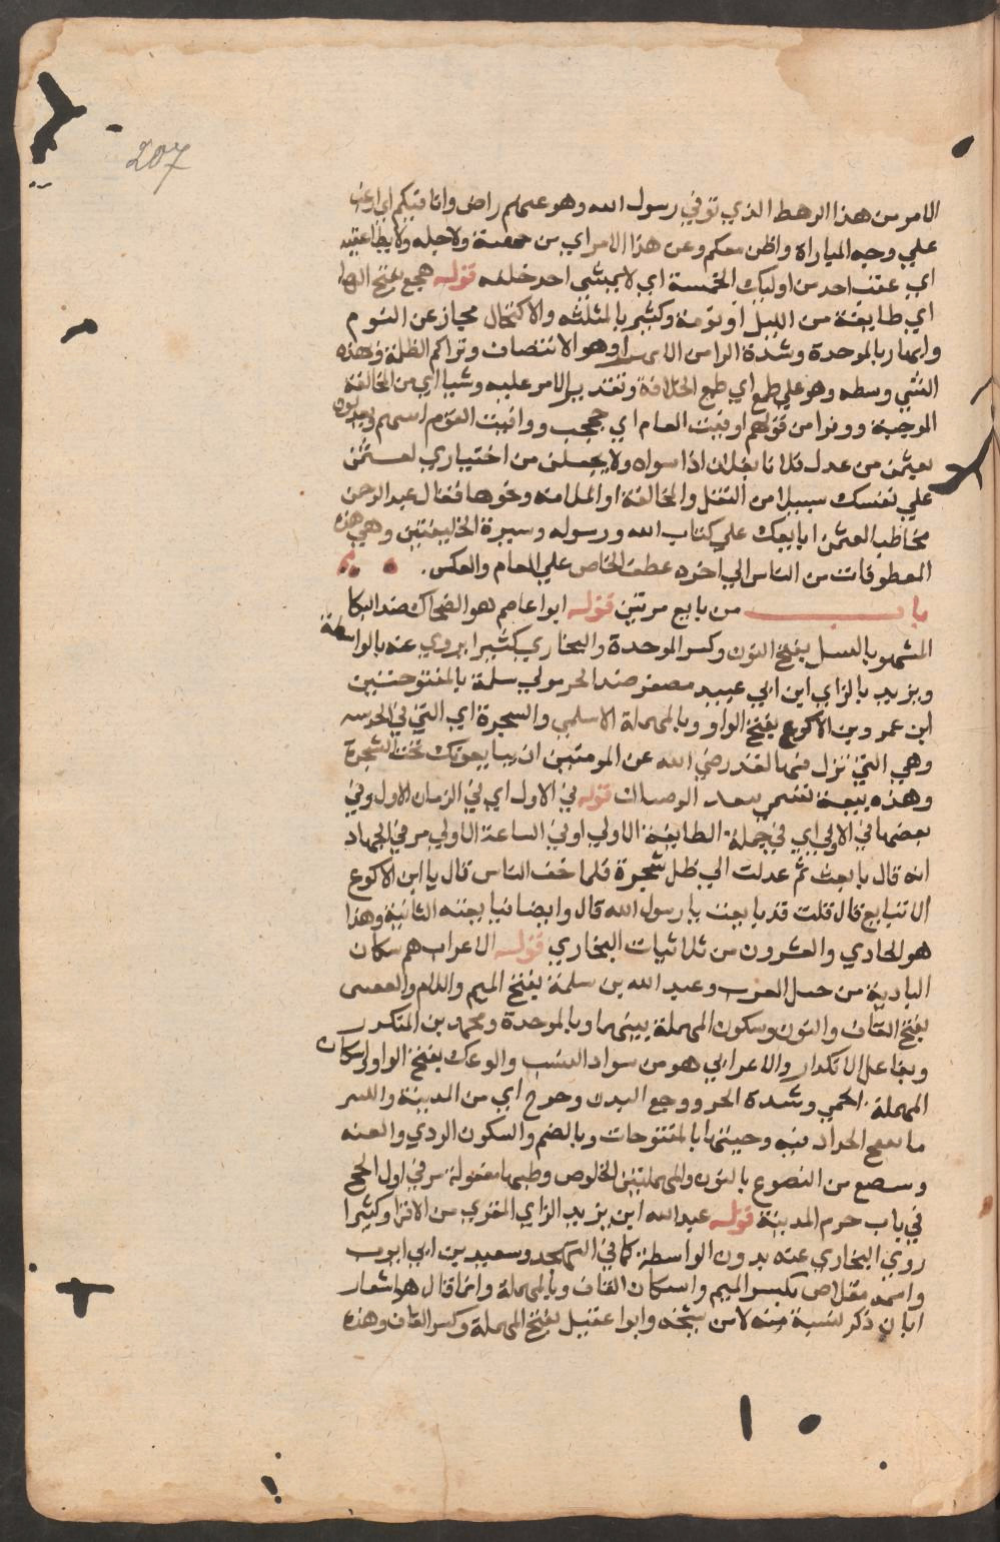 207
الامر من هذا الرهط الذي توفي رسول الله وهو عنهم راض وانا فيكم اي ارغب
علي وجه المباراة واظن معكم وعن هذا الامر اي من جهته ولاجله ولا يطا عقبه
اي عقب احد من اوليك الخمسة اي لا يمشي احد خلفه قوله هجع بفتح الها
اي طايفة من الليل او نومة وكثير بالمثلثة والاكتحال مجاز عن النوم
وابهار بالموحدة وشدة الرا من الابهيرار وهو الانتصاف وتراكم الظلمة وبهرة
الشي وسطه وهو علي طمع اي طمع الخلافة وتقدير الامر عليه وشيا اي من المخالفة
الموجبة ووافوا من قولهم وافيت العام اي حججت ووافيت القوم اتيتهم ويعدلون
بعثمن من عدل فلانا بفلان اذا سواه ولا يجعلن من اختياري لعثمن
علي نفسك سبيلا من القتل والمخالفة او الملامة ونحوها فقال عبد الرحمن
مخاطبا لعثمن ابايعك علي كتاب الله ورسوله وسيرة الخليفتين وهي هذه
المعطوفات من الناس الي اخره عطف الخاص علي العام والعكس.
باب من بايع مرتين قوله ابوا عاصم هو الضحاك ضد البكا
المشهور بالنبيل بفتح النون وكسر الموحدة والبخاري كثيرا يروي عنه بالواسطة
ويزيد بالزاي ابن ابي عبيد مصغر ضد الحر مولي سلمة بالمفتوحتين
ابن عمرو بن الاكوع بفتح الواو وبالمهملة الاسلمي والشجرة اي التي في الحديبية
وهي التي نزل فيها لقد رضي الله عن المومنين اذ يبايعونك تحت الشجرة
وهذه بيعة تسمي بيعة الرضوان قوله في الاول اي في الزمان الاول وفي
بعضها في الاولي اي في جملة الطايفة الاولي او في الساعة الاولي مر في الجهاد
انه قال بايعت ثم عدلت الي ظل شجرة فلما خف الناس قال يا ابن الاكوع
الا تبايع قال قلت قد بايعت يا رسول الله قال وايضا فبايعته الثانية وهذا
هو الحادي والعشرون من ثلاثيات البخاري قوله الاعراب هم سكان
البادية من جيل العرب وعبد الله بن سلمة بفتح الميم واللام والقعنبي
بفتح القاف والنون وسكون المهملة بينهما وبالموحدة ومحمد بن المنكدر
وبفاعل الانكدار والاعرابي هو من سواد النسب والوعك بفتح الواو واسكان
المهملة الحمي وشدة الحر ووجع البدن وخرج اي من المدينة والكير
ما ينفخ الحداد فيه وخبثها بالمفتوحات وبالضم والسكون الردي والغش
وينصع من النصوع بالنون والمهملتين الخلوص وطيبها مفعوله مر في اول الحج
في باب حرم المدينة قوله عبد الله ابن يزيد الزاي المقري من الاقرا وكثيرا
روي البخاري عنه بدون الواسطة كما في التهجد وسعيد بن ابي ايوب
واسمه مقلاص بكسر الميم واسكان القاف وبالمهملة وانما قال هو اشعار
ابان ذكر نسبة منه لا من شيخه وابوا عقيل بفتح المهملة وكسر القاف وهذه